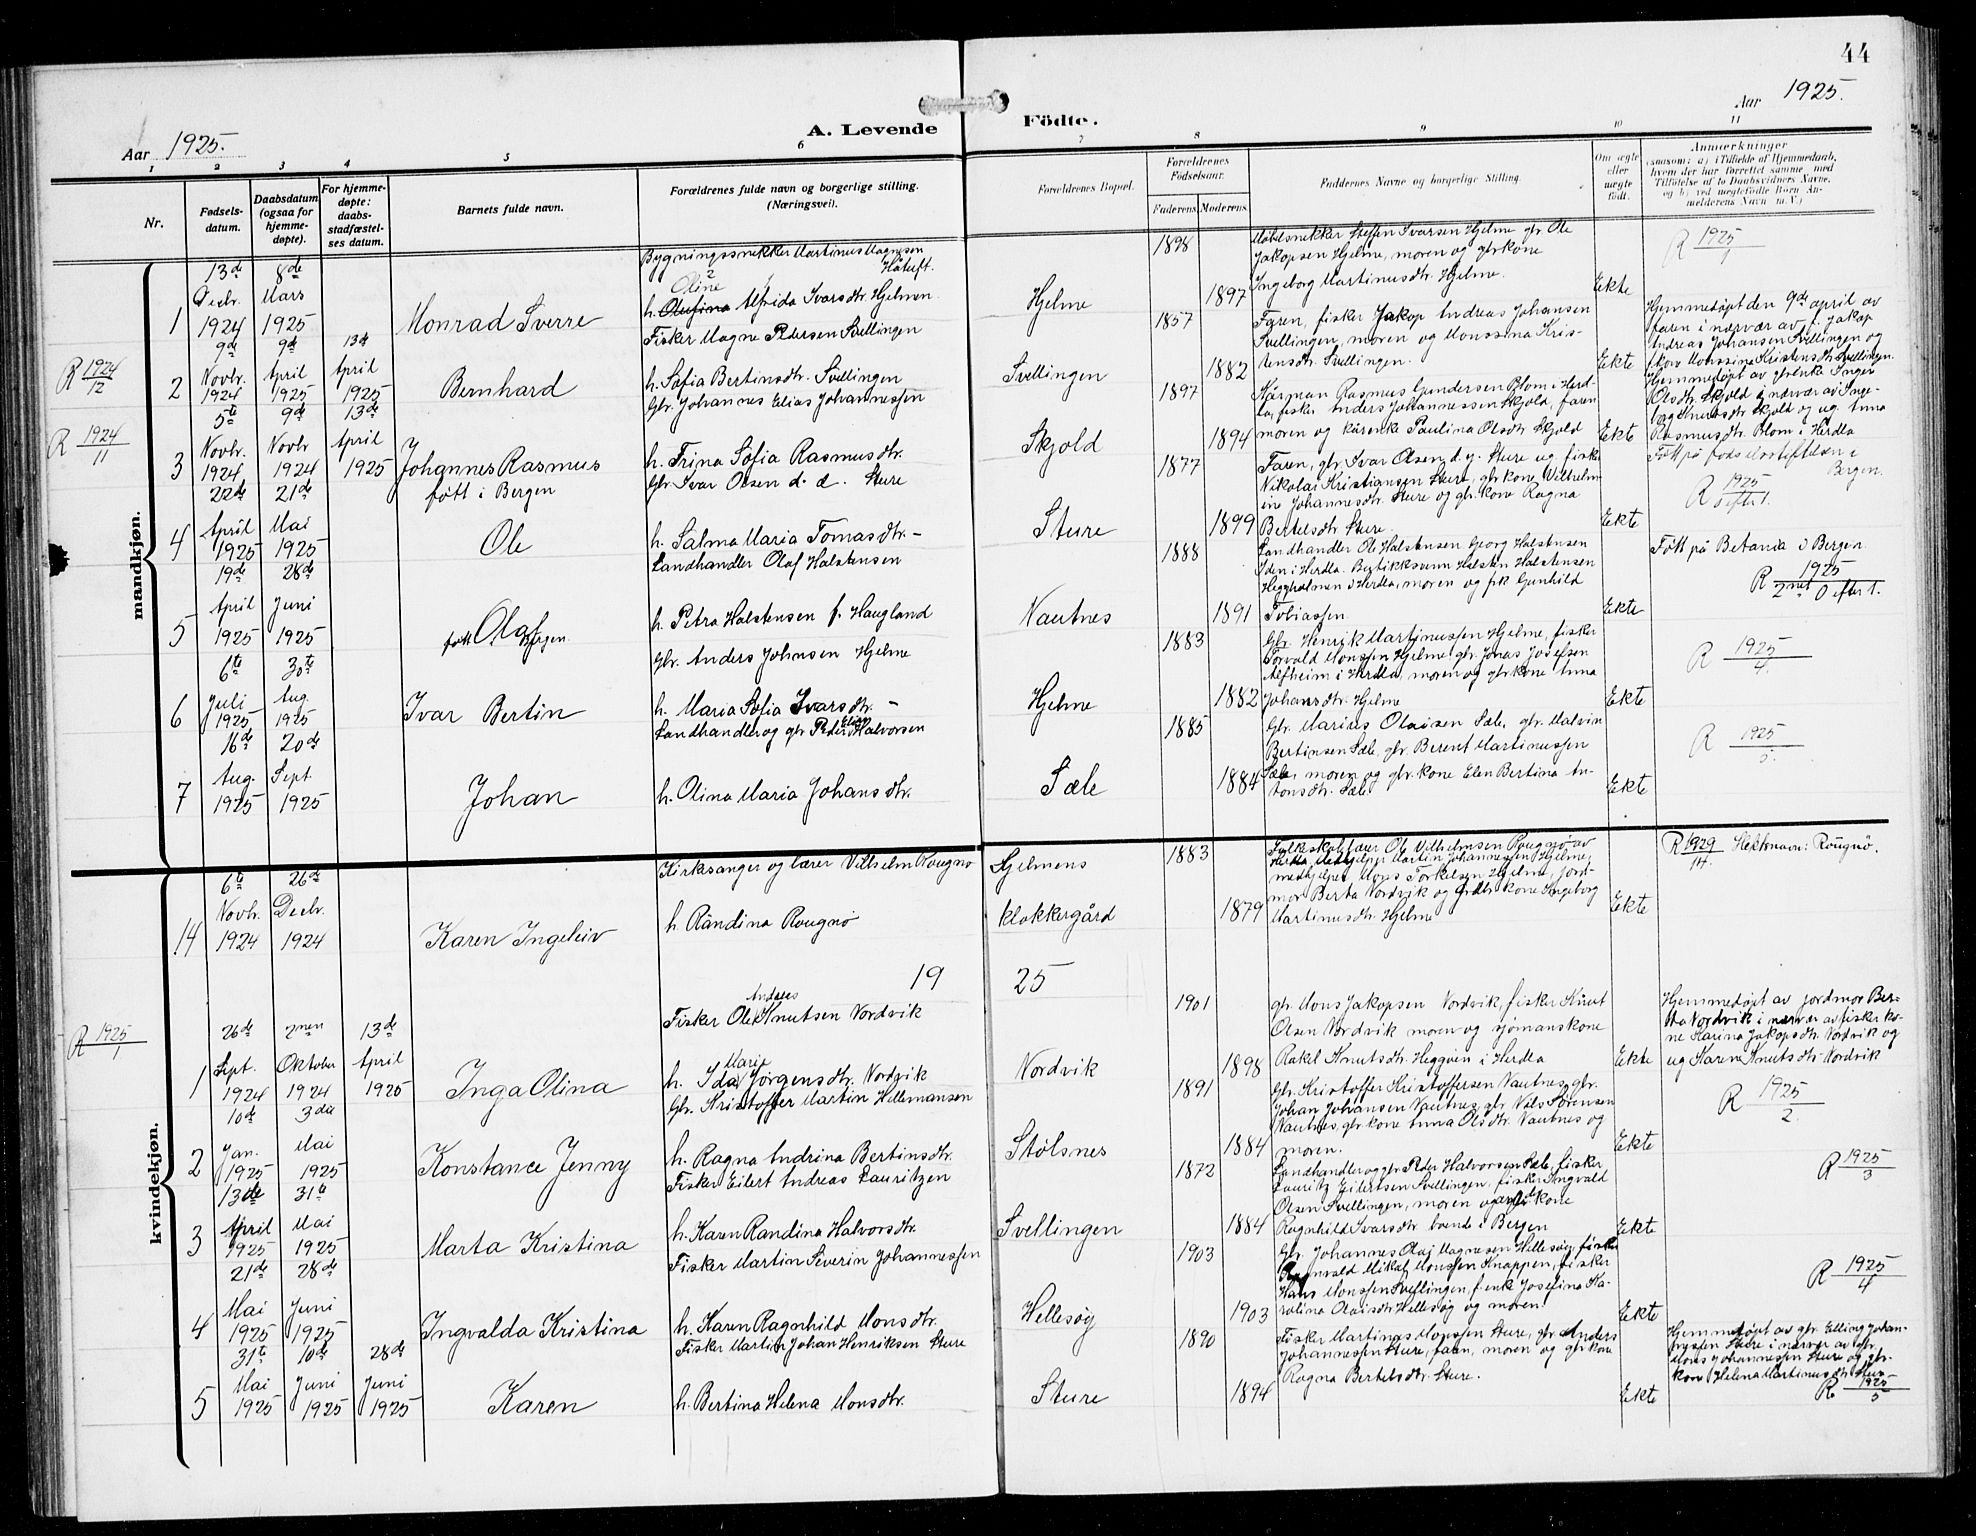 44
Aar 1925.
A. Levende Födte.
Aar 1925.
1 2 3 4 5 6 7 8 9 10 11
Nr.
Fødsels-
datum.
Daabsdatum
(ogsaa for
hjemme-
døpte).
For hjemme-
døpte:
daabs-
stadfæstel-
ses datum.
Barnets fulde navn.
Forældrenes fulde navn og borgerlige stilling.
(Næringsvei).
Forældrenes Bopæl.
Forældrenes
Fødselsaar.
Faderens.
Moderens.
Faddernes Navne og borgerlige Stilling.
Om ægte
eller
uægte
født.
Anmærkninger
(saasom: a) i Tilfælde af Hjemmedaab,
hvem der har forrettet samme med
Tilføielse af to Daabsvidners Navne,
og b) ved uegtefødte Börn An-
melderens Navn m.V.)
mandkjøn.
1
13de Decbr. 1924
8de Mars 1925
Monrad Sverre
Bygningssnekker Martinus Magnesen
Håtuft.
Oline
h. Olufina Alfrida Ivarsdtr. Hjelmen
Hjelme
1898
1897
Møbelsnekker Steffen Ivarsen Hjelme gbr. Ole
Jakopsen Hjelme, moren og gbrkone
Ingeborg Martinusdtr. Hjelme.
Ekte
R 1925/1
R 1924/12
2
9de Novbr. 1924
9de April 1925
13de April 1925
Bernhard
Fisker Magne Pedersen Svellingen
h. Sofia Bertinsdtr. Svellingen
Svellingen
1857
1882
Faren, fisker Jakop Andreas Johansen
Svellingen, moren og Monssina Kris-
tensdtr. Svellingen.
Ekte
Hjemmedøpt den 9de april av
faren i nærvær av fi. Jakop
Andreas Johansen Svellingen og
fkone Monssine Kristensdtr. Svellingen.
R 1924/11
3
5te Novbr. 1924
9de Novbr 1924
13de April 1925
Johannes Rasmus
født i Bergen
Gbr. Johannes Elias Johannessen
h. Trina Sofia Rasmusdtr.
Skjold
1897
1894
Kårman Rasmus Gundersen Blom i Herd-
la, fisker Anders Johannessen Skjold, faren
moren og kårenke Paulina Olsdtr Skjold
Ekte
Hjemmedøpt av gbrenke Inger
Olsdtr. Skjold i nærvær av Inge-
borg Knutsdtr. Skjold og ug. Anna
Rasmusdtr. Blom i Herdla
Født på fødselsstiftelsen i
Bergen.
4
22de April 1925
21de Mai 1925
Ole
Gbr. Ivar Olsen d. e. Sture
h. Salma Maria Tomasdtr. -
Sture
1877
1899
Faren, gbr. Ivar Olsen d. y. Sture ug. fisker
Nikolai Kristiansen Sture, gbrkone Vilhelm
ine Johannesdtr. Sture og gbr. kone Ragna
Bertelsdtr. Sture.
Ekte
R 1925/0 eftr 1.
5
19de April 1925
28de Juni 1925
Olaf
født i Bergen
Landhandler Olaf Halstensen
h. Petra Halstensen f. Haugland
Nautnes
1888
1891
Landhandler Ole Halstensen Georg Halstensen
Iden i Herdla. Butikksvenn Halsten Halstensen
Heggholmen i Herdla, moren og frk Gunhild
Tobiassen.
Ekte
Født på Betania i Bergen
R 1925/2net 0 efter 1.
6
6te Juli 1925
30te Aug. 1925
Ivar Bertin
Gbr. Anders Johnsen Hjelme
h. Maria Sofia Ivarsdtr. -
Hjelme
1883
1882
Gbr. Henrik Martinussen Hjelme, fisker
Torvald Monssen Hjelme, gbr. Jonas Josefsen
Alfheim i Herdla, moren og gbrkone Anna
Johansdtr. Hjelme
Ekte
R 1925/4.
7
16de Aug. 1925
20de Sept. 1925
Johan
Landhandler og gbr Peder Elias Halvorsen
h. Olina Maria Johansdtr.
Sæle
1885
1884
Gbr. Marius Olaisen Sæle, gbr. Malvin
Bertinsen Sæle, gbr. Berent Martinussen
Sæle, moren og gbr. kone Elen Bertina An-
tonsdtr. Sæle
Ekte
R 1925/5.
kvindekjøn.
14
6te Novbr. 1924
26de Decbr. 1924
Karen Ingeleiv
Kirkesanger og lærer Vilhelm Rougnø
h. Råndina Rougnø
Hjelmens
klokkergård
1883
1879
Folkeskolelærer Ole Vilhelmsen Rougnø av
Herdla, Medhjelper Martin Johannessen Hjelme,
medhjelper Mons Torkelsen Hjelme, jord-
mor Berta Nordvik og gbr. kone Ingeborg
Martinusdtr. Hjelme
Ekte
R 1929/14. Slektsnavn: Rougnø.
19 25
R 1925/1
1
26de Sept. 1924
2nen Oktober 1924
13de April 1925
Inga Olina
Andreas
Fisker Ole Knutsen Nordvik
Marie
h. Ida Jörgensdtr. Nordvik
Nordvik
1901
1898
gbr Mons Jakopsen Nordvik, fisker Knut
Olsen Nordvik moren og sjømanskone
Rakel Knutsdtr. Heggøen i Herdla
Ekte
Hjemmedøpt av jordmor Ber-
ta Nordvik i nærvær av fisker ko-
ne Karina Jakopsdtr. Nordvik og
ug Karine Knutsdtr. Nordvik
2
10de Jan. 1925
3die Mai 1925
Konstance Jenny
Gbr. Kristoffer Martin Hillemansen
h. Ragna Andrina Bertinsdtr.
Stølsnes
1891
1884
Gbr. Kristoffer Kristoffersen Nautnes, gbr.
Johan Johansen Nautnes, gbr. Nils Sörensen
Nautnes, gbr. kone Anna Olsdtr. Nautnes og
moren.
Ekte
R 1925/2.
3
13de April 1925
31te Mai 1925
Marta Kristina
Fisker Eilert Andreas Lauritzen
h. Karen Randina Halvorsdtr.
Svellingen
1872
1884
Landhandler og gbr Peder Halvorsen Sæle, fisker
Lauritz Eilertsen Svellingen, fisker Ingvald
Olsen Svellingen, moren og arb. kone
Ragnhild Ivarsdtr boende i Bergen
Ekte
R 1925/3
4
21de Mai 1925
28de Juni 1925
Ingvalda Kristina
Fisker Martin Severin Johannessen
h. Karen Ragnhild Monsdtr.
Hellesøy
1903
1903
Gbr. Johannes Olai Magnesen Hellesøy, fisker
Ragnvald Mikal Monssen Knappen, fisker
Hans Monssen Svellingen, f. enk Josefina Ka-
rolina Olaisdtr Hellesøy og moren.
Ekte
R 1925/4
5
31te Mai 1925
10de Juni 1925
28de Juni 1925
Karen
Fisker Martin Johan Henriksen Sture
h. Bertina Helena Monsdtr.
Sture
1890
1894
Fisker Martines Monssen Sture, gbr. Anders
Johannessen Sture, faren, moren og gbrkone
Ragna Bertelsdtr. Sture.
Ekte
Hjemmedøpt av gbr. Elling Johan-
nessen Sture i nærvær av gbr.
Mons Johannessen Sture og gbr.
kone Helena Martinusdtr. Sture
R 1925/5